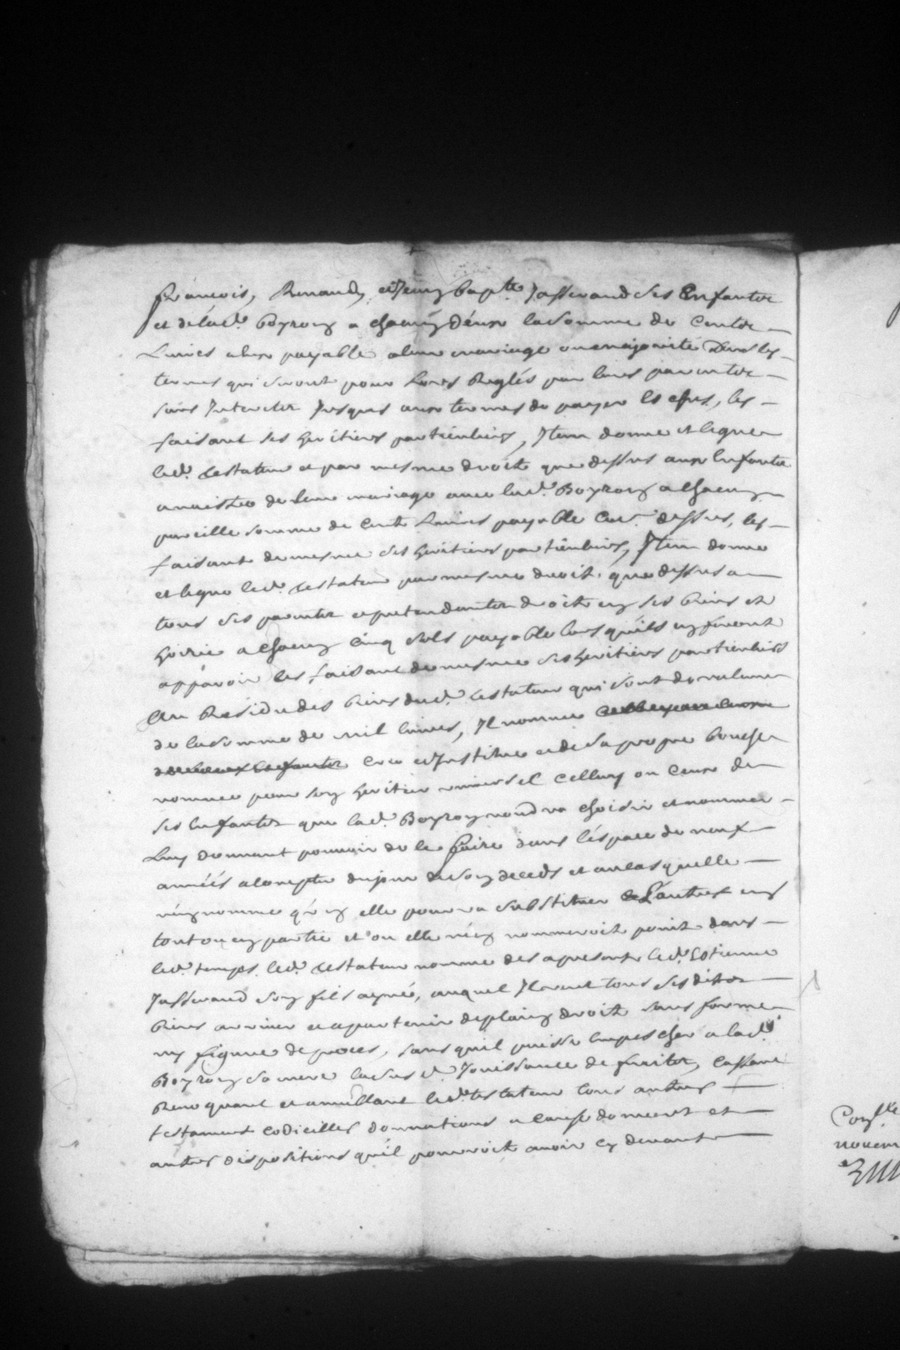 francois, Renaud, et Jean bapte Jasseraud ses Enfantes
et de lad. Boyron a chacun d'eux la somme de Centes
Livres a eux payable a leur mariage ou majorité Dans les
termes qui seront pour Lors Reglés par leurs parentes
sans Interets Jusques aux termes de payer les
faisant ses heritiers particuliers, Item donne et legue
led. testateur et par mesme droit que dessus aux Enfantes
a naistre de leur mariage avec lad. Boyron a chacun
pareille somme de Cent Livres payable dessus, les
faisant de mesme ses heritiers particuliers, Item donne
et legue led. testateur par mesme droit que dessus a
tous ses parentes et pretendantes droit en ses biens et
hoirie a chacun Cinq Sols payable lors quils en feront
apparoir les faisant de mesme ses heritiers particuliers
Au Residu des biens dud. testateur qui sont de valeur
de la somme de mil livres, Il nomme
cree et Institue et de sa propre bouche
nomme pour son heritier universel Celluy ou Ceux de
ses Enfantes que lad. Boyron voudra choisir et nommer
Luy donnant pouvoir de le faire dans l'espace de neuf
années a compter du jour de son deceds et au cas quelle
n'en nomme qu'un elle pourra substituer L'autre en
tout ou en partie et ou elle n'en nommeroit point dans
led. temps, led. testateur nomme des apresent led. Estienne
Jasseraud son fils ayné, auquel Il veut tous ses dites
biens arriver et apartenir de plain droit sans forme
ny figure de proces, sans quil puisse empescher a lad.
Boyron sa mere lad. Jouissance de fruites, Cassant
Revoquant et annullant led. testateur tous autres
testaments codicilles donnations a cause de mort et
autres dispositions qu'il pourroit avoir cy devant
novem